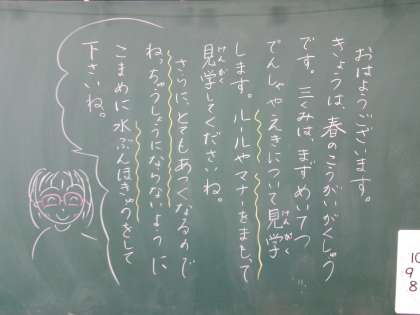 おはようございます。
きょうは、春のこうがいがくしゅう
です。三くみは、まずめいてつ
でんしゃやえきについて見学
けんがく
します。ルールやマナーをまもって
見学してくださいね。
けんがく
さらに、とてもあつくなるので
ねっちゅうしょうにならないように
こまめに水ぶんほきゅうをして
下さいね。
10
9
8